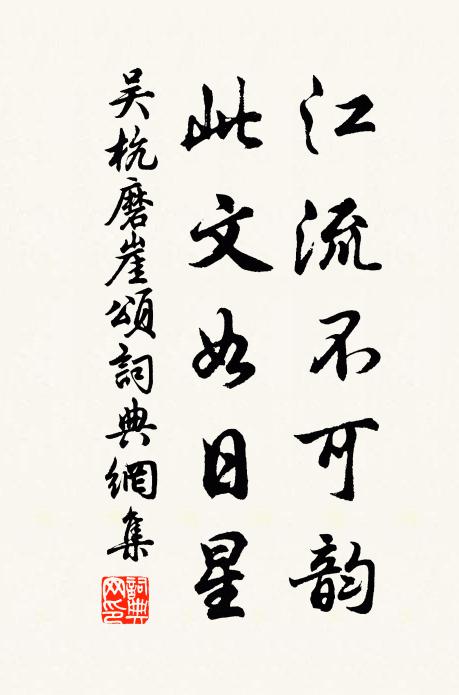 江流不可韵
此文如日星
吴杭磨崖頌詞典網集
詞典网印